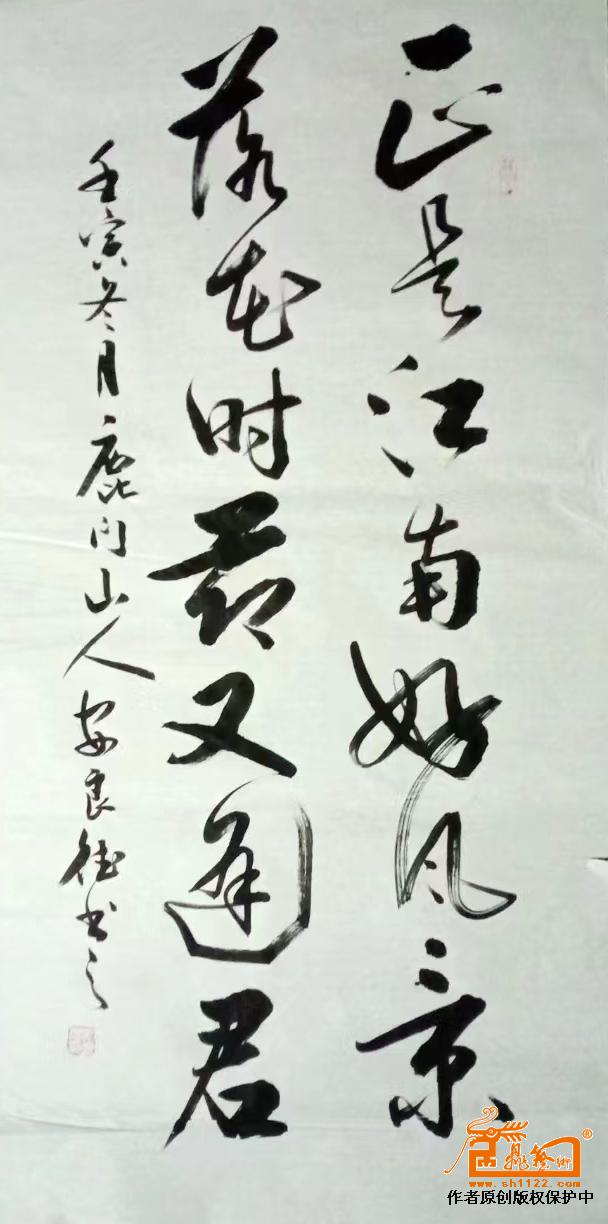 正是江南好风景
落花时節又逢君
壬寅冬月鹿门山人安良德书之
®
www.sh1122.com
作者原创版权保护中